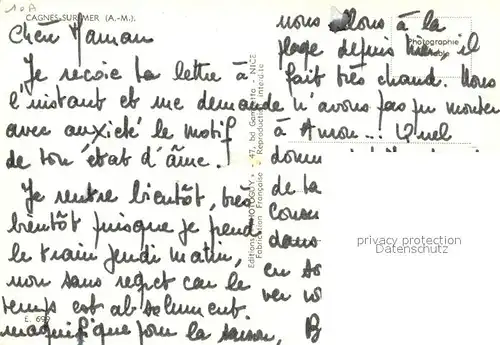 10A
CAGNES-SUR-MER (A.-M.).
Chère Maman
Je reçois ta lettre à
l'instant et me demande
avec anxieté le motif
de ton état d'âme.
Je rentre bientôt, très
bientôt puisque je prend
le train jeudi matin,
non sans regret car le
temps est absolument
magnifique pour la saison,
E. 699
nous allons à la
plage depuis hier, il
fait très chaud. Nous
n'avons pas pu monter
à Amon... Quel
donn
de ta
Coura
dans
en
ver vo
B
Photographie
Editions PHOTOGUY - 47, bd Gambetta - NICE
Fabrication Française - Reproduction Interdite
privacy protection
Datenschutz